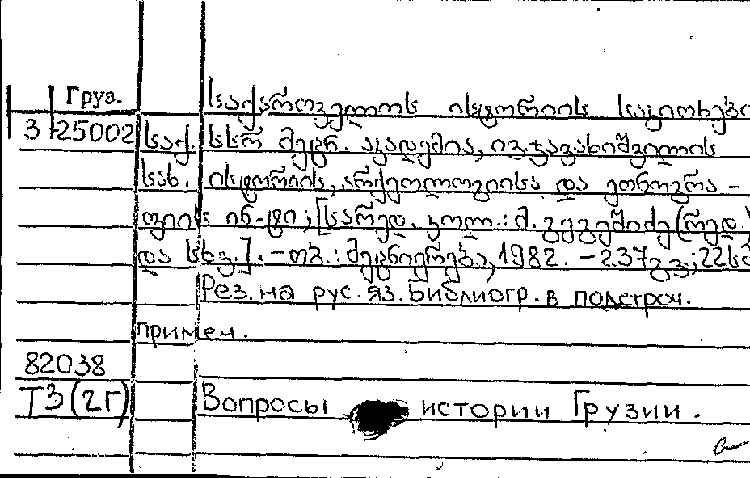 Груз.
საქართველოს ისტორიის საკითხები
3-25002 საქ. სსრ მეცნ. აკადემია, ივ. ჯავახიშვილის
სახ. ისტორიის, არქეოლოგიისა და ეთნოგრა-
ფიის ინ-ტი; [სარედ. კოლ.: მ. გეგეშიძე (რედ.)
და სხვ.]. - თბ.: მეცნიერება, 1982. - 237 გვ.; 22 სმ
Рез. на рус. яз. Библиогр. в подстроч.
примеч.
82038
Т3(2Г) Вопросы истории Грузии.